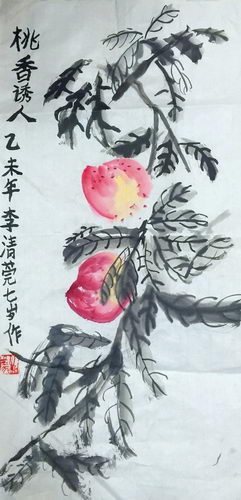 桃香诱人
乙未年李清莞七岁作